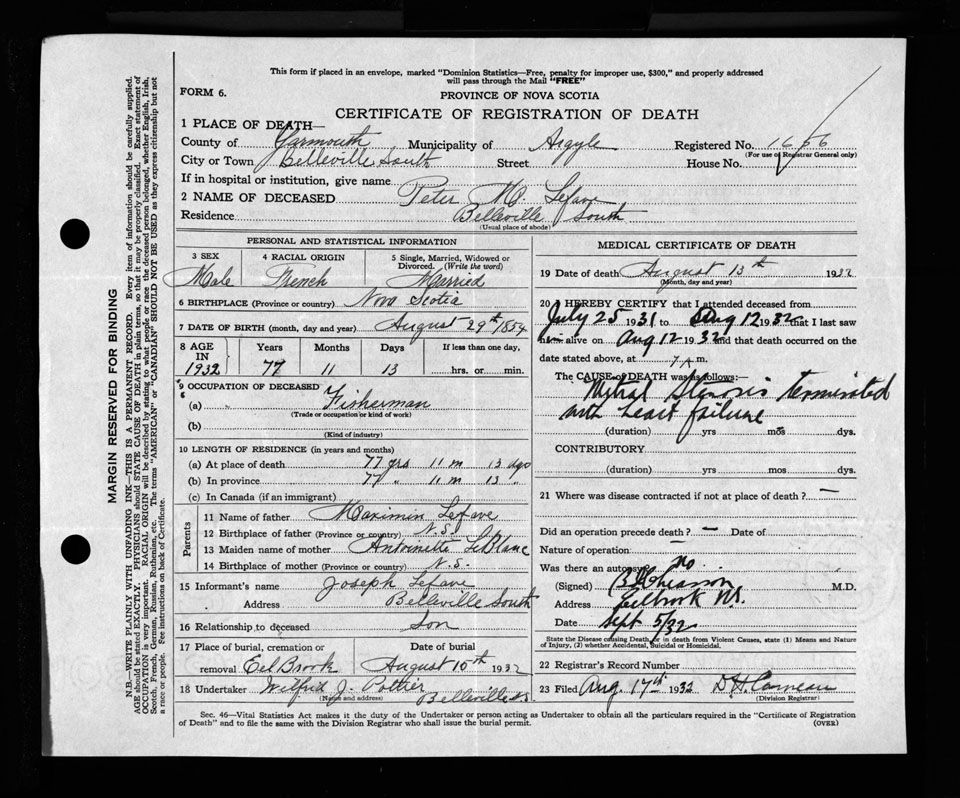 This form if placed in an envelope, marked "Dominion Statistics—Free, penalty for improper use, $300," and properly addressed
will pass through the Mail "FREE"
FORM 6.
PROVINCE OF NOVA SCOTIA
CERTIFICATE OF REGISTRATION OF DEATH
1 PLACE OF DEATH—
County of Yarmouth Municipality of Argyle Registered No. 1656
(For use of Registrar General only)
City or Town Belleville South Street House No.
If in hospital or institution, give name
2 NAME OF DECEASED Peter M. Lefave
Residence Belleville South
(Usual place of abode)
PERSONAL AND STATISTICAL INFORMATION
3 SEX 4 RACIAL ORIGIN 5 Single, Married, Widowed or
Divorced. (Write the word)
Male French Married
6 BIRTHPLACE (Province or country) Nova Scotia
7 DATE OF BIRTH (month, day and year) August 29th 1854
8 AGE IN 1932 Years Months Days If less than one day,
77 11 13 hrs. or min.
9 OCCUPATION OF DECEASED
(a) Fisherman
(Trade or occupation or kind of work)
(b)
(Kind of industry)
10 LENGTH OF RESIDENCE (in years and months)
(a) At place of death 77 yrs 11 m 13 dys
(b) In province 77 " 11 m 13 "
(c) In Canada (if an immigrant)
Parents
11 Name of father Maximin Lefave
12 Birthplace of father (Province or country) N.S.
13 Maiden name of mother Antoinette LeBlanc
14 Birthplace of mother (Province or country) N.S.
15 Informant's name Joseph Lefave
Address Belleville South
16 Relationship to deceased Son
17 Place of burial, cremation or Date of burial
removal Eel Brook August 15th 1932
18 Undertaker Wilfred J. Pottier
(Name and address) Belleville N.S.
MEDICAL CERTIFICATE OF DEATH
19 Date of death August 13th 1932
(Month, day and year)
20 I HEREBY CERTIFY that I attended deceased from
July 25 1931 to Aug 12 1932 that I last saw
him alive on Aug 12 1932 and that death occurred on the
date stated above, at 7 A m.
The CAUSE of DEATH was as follows:
Mitral Stenosis terminated
with heart failure
(duration) yrs mos dys.
CONTRIBUTORY
(duration) yrs mos dys.
21 Where was disease contracted if not at place of death? —
Did an operation precede death? — Date of
Nature of operation —
Was there an autopsy? No
(Signed) M.D.
Address Eelbrook N.S.
Date Sept 5/32
State the Disease causing Death or in death from Violent Causes, state (1) Means and Nature
of Injury, (2) whether Accidental, Suicidal or Homicidal.
22 Registrar's Record Number
23 Filed Aug. 17th 1932
(Division Registrar)
Sec. 46—Vital Statistics Act makes it the duty of the Undertaker or person acting as Undertaker to obtain all the particulars required in the "Certificate of Registration
of Death" and to file the same with the Division Registrar who shall issue the burial permit. (OVER)
MARGIN RESERVED FOR BINDING
N.B.—WRITE PLAINLY WITH UNFADING INK—THIS IS A PERMANENT RECORD. Every item of information should be carefully supplied.
AGE should be stated EXACTLY. PHYSICIANS should STATE CAUSE OF DEATH in plain terms, so that it may be properly classified. Exact statement of
OCCUPATION is very important. RACIAL ORIGIN will be described by stating to what people or race the deceased person belonged, whether English, Irish,
Scotch, French, German, Russian, Ruthenian, etc. The terms "AMERICAN" or "CANADIAN" SHOULD NOT BE USED as they express citizenship but not
a race or people. Fee instructions on back of Certificate.